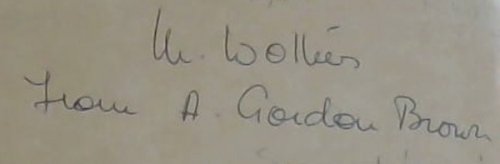 W. Wolliés
From A. Gordon Brown